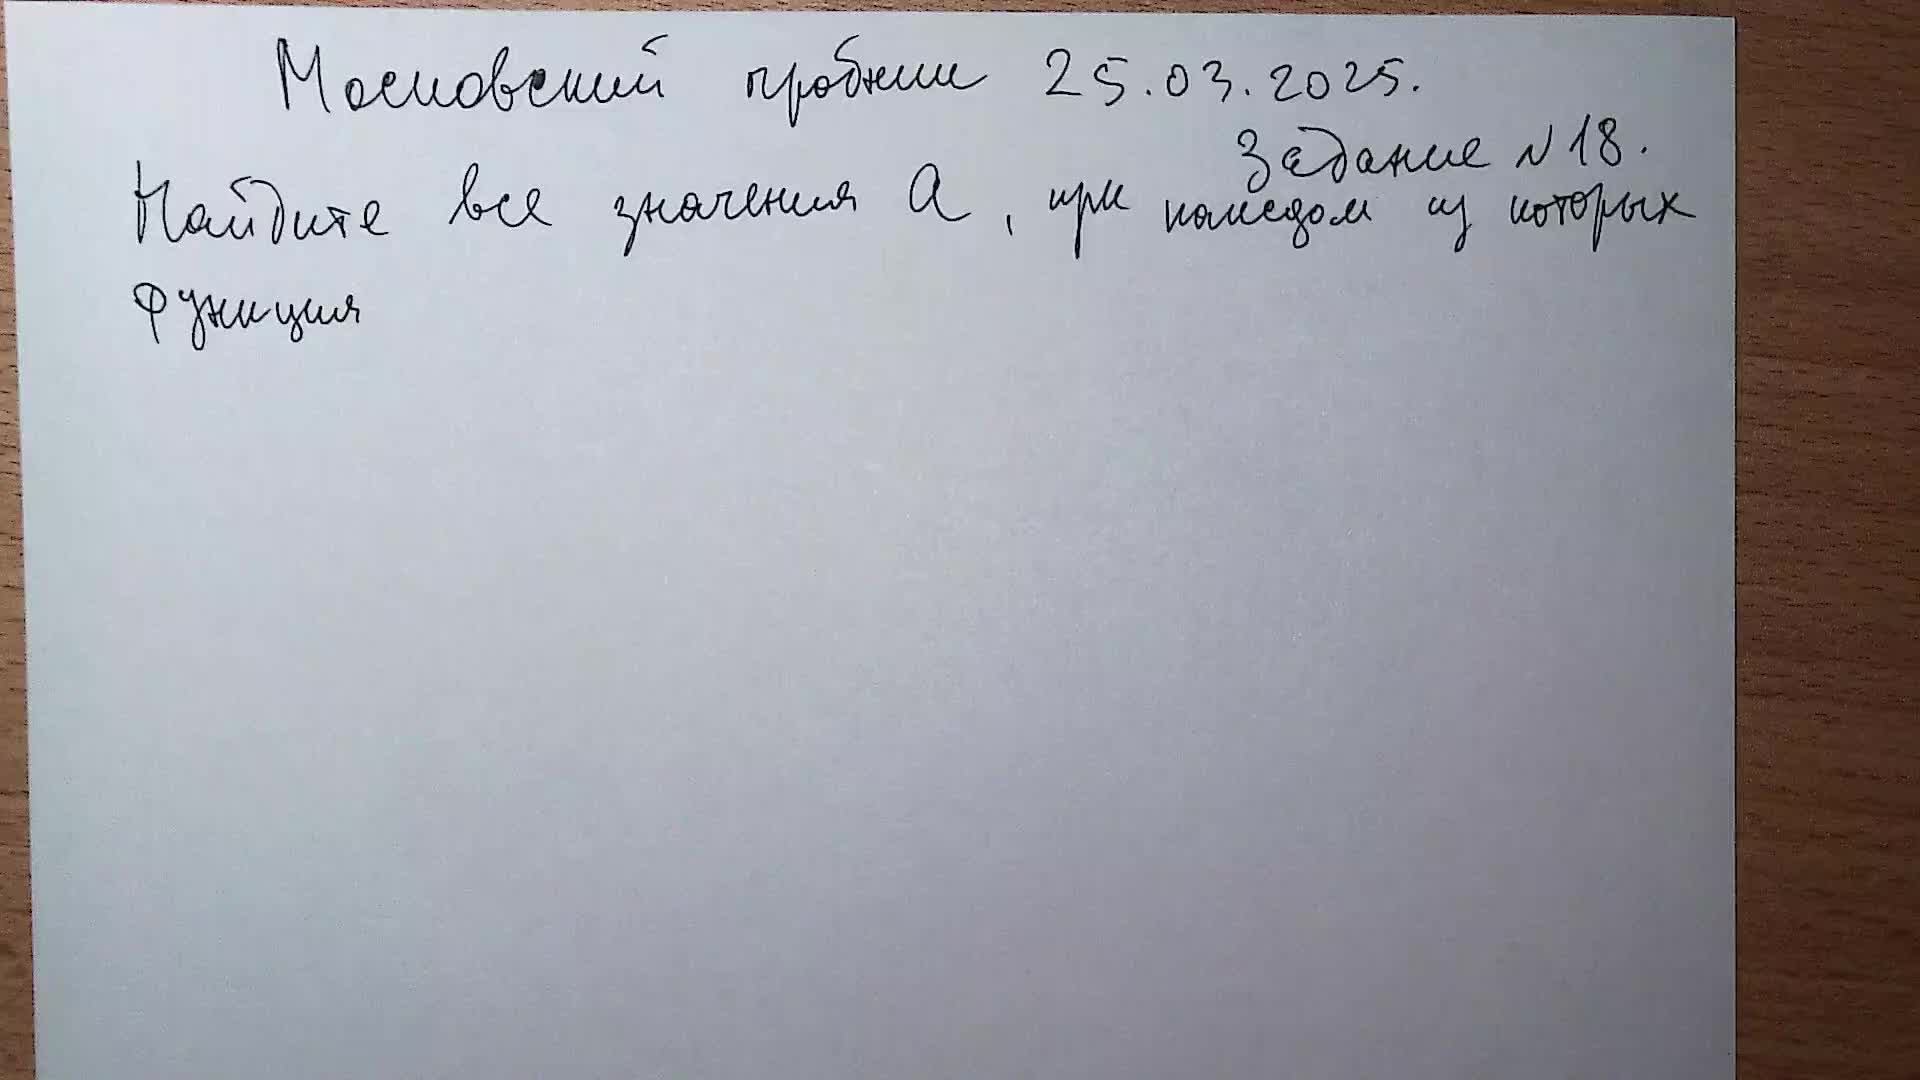 Московский пробник 25.03.2025.
Задание №18.
Найдите все значения a, при каждом из которых
функция